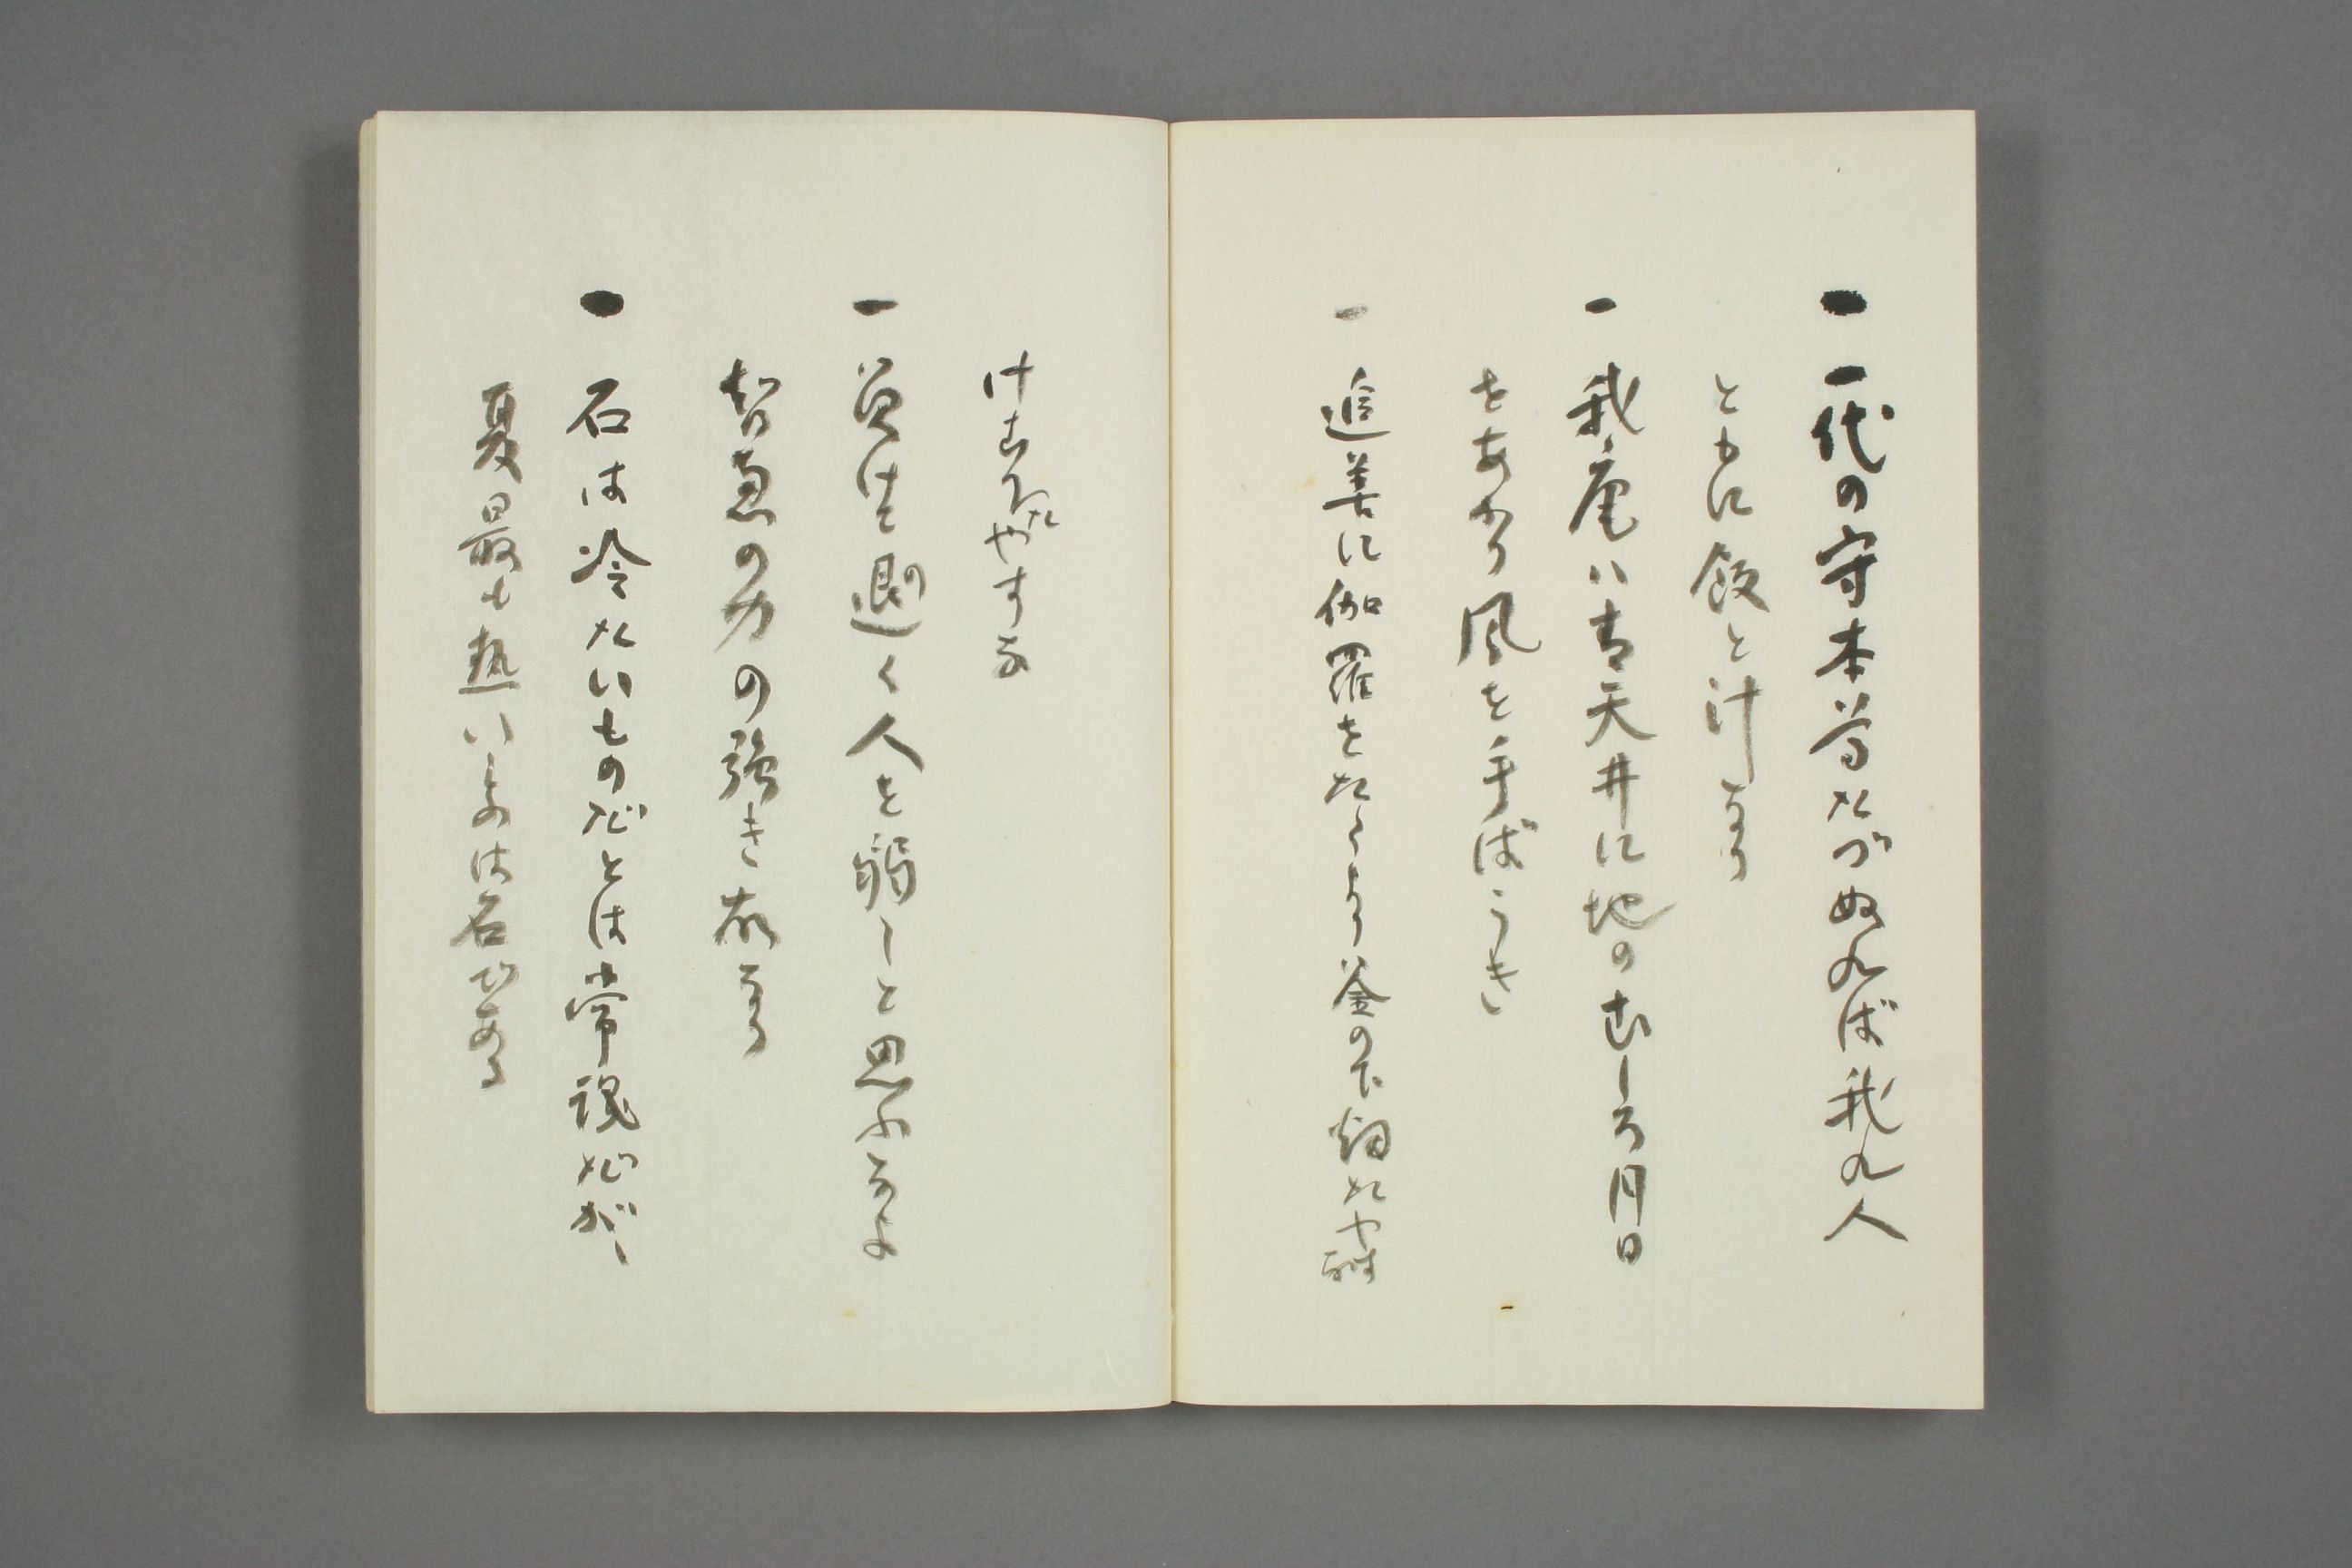 一 一代の守本尊たづぬれば我れ人
ともに飯と汁なり
一 我庵ハ青天井に地のむしろ月日
をあかり風を手ばうき
一 追善に伽羅をたくより釜の下
けむ
一 負けて退く人を弱しと思ふなよ
智恵の力の強き故なり
一 石は冷たいものだとは常識だが、
夏日最も熱いものは石である